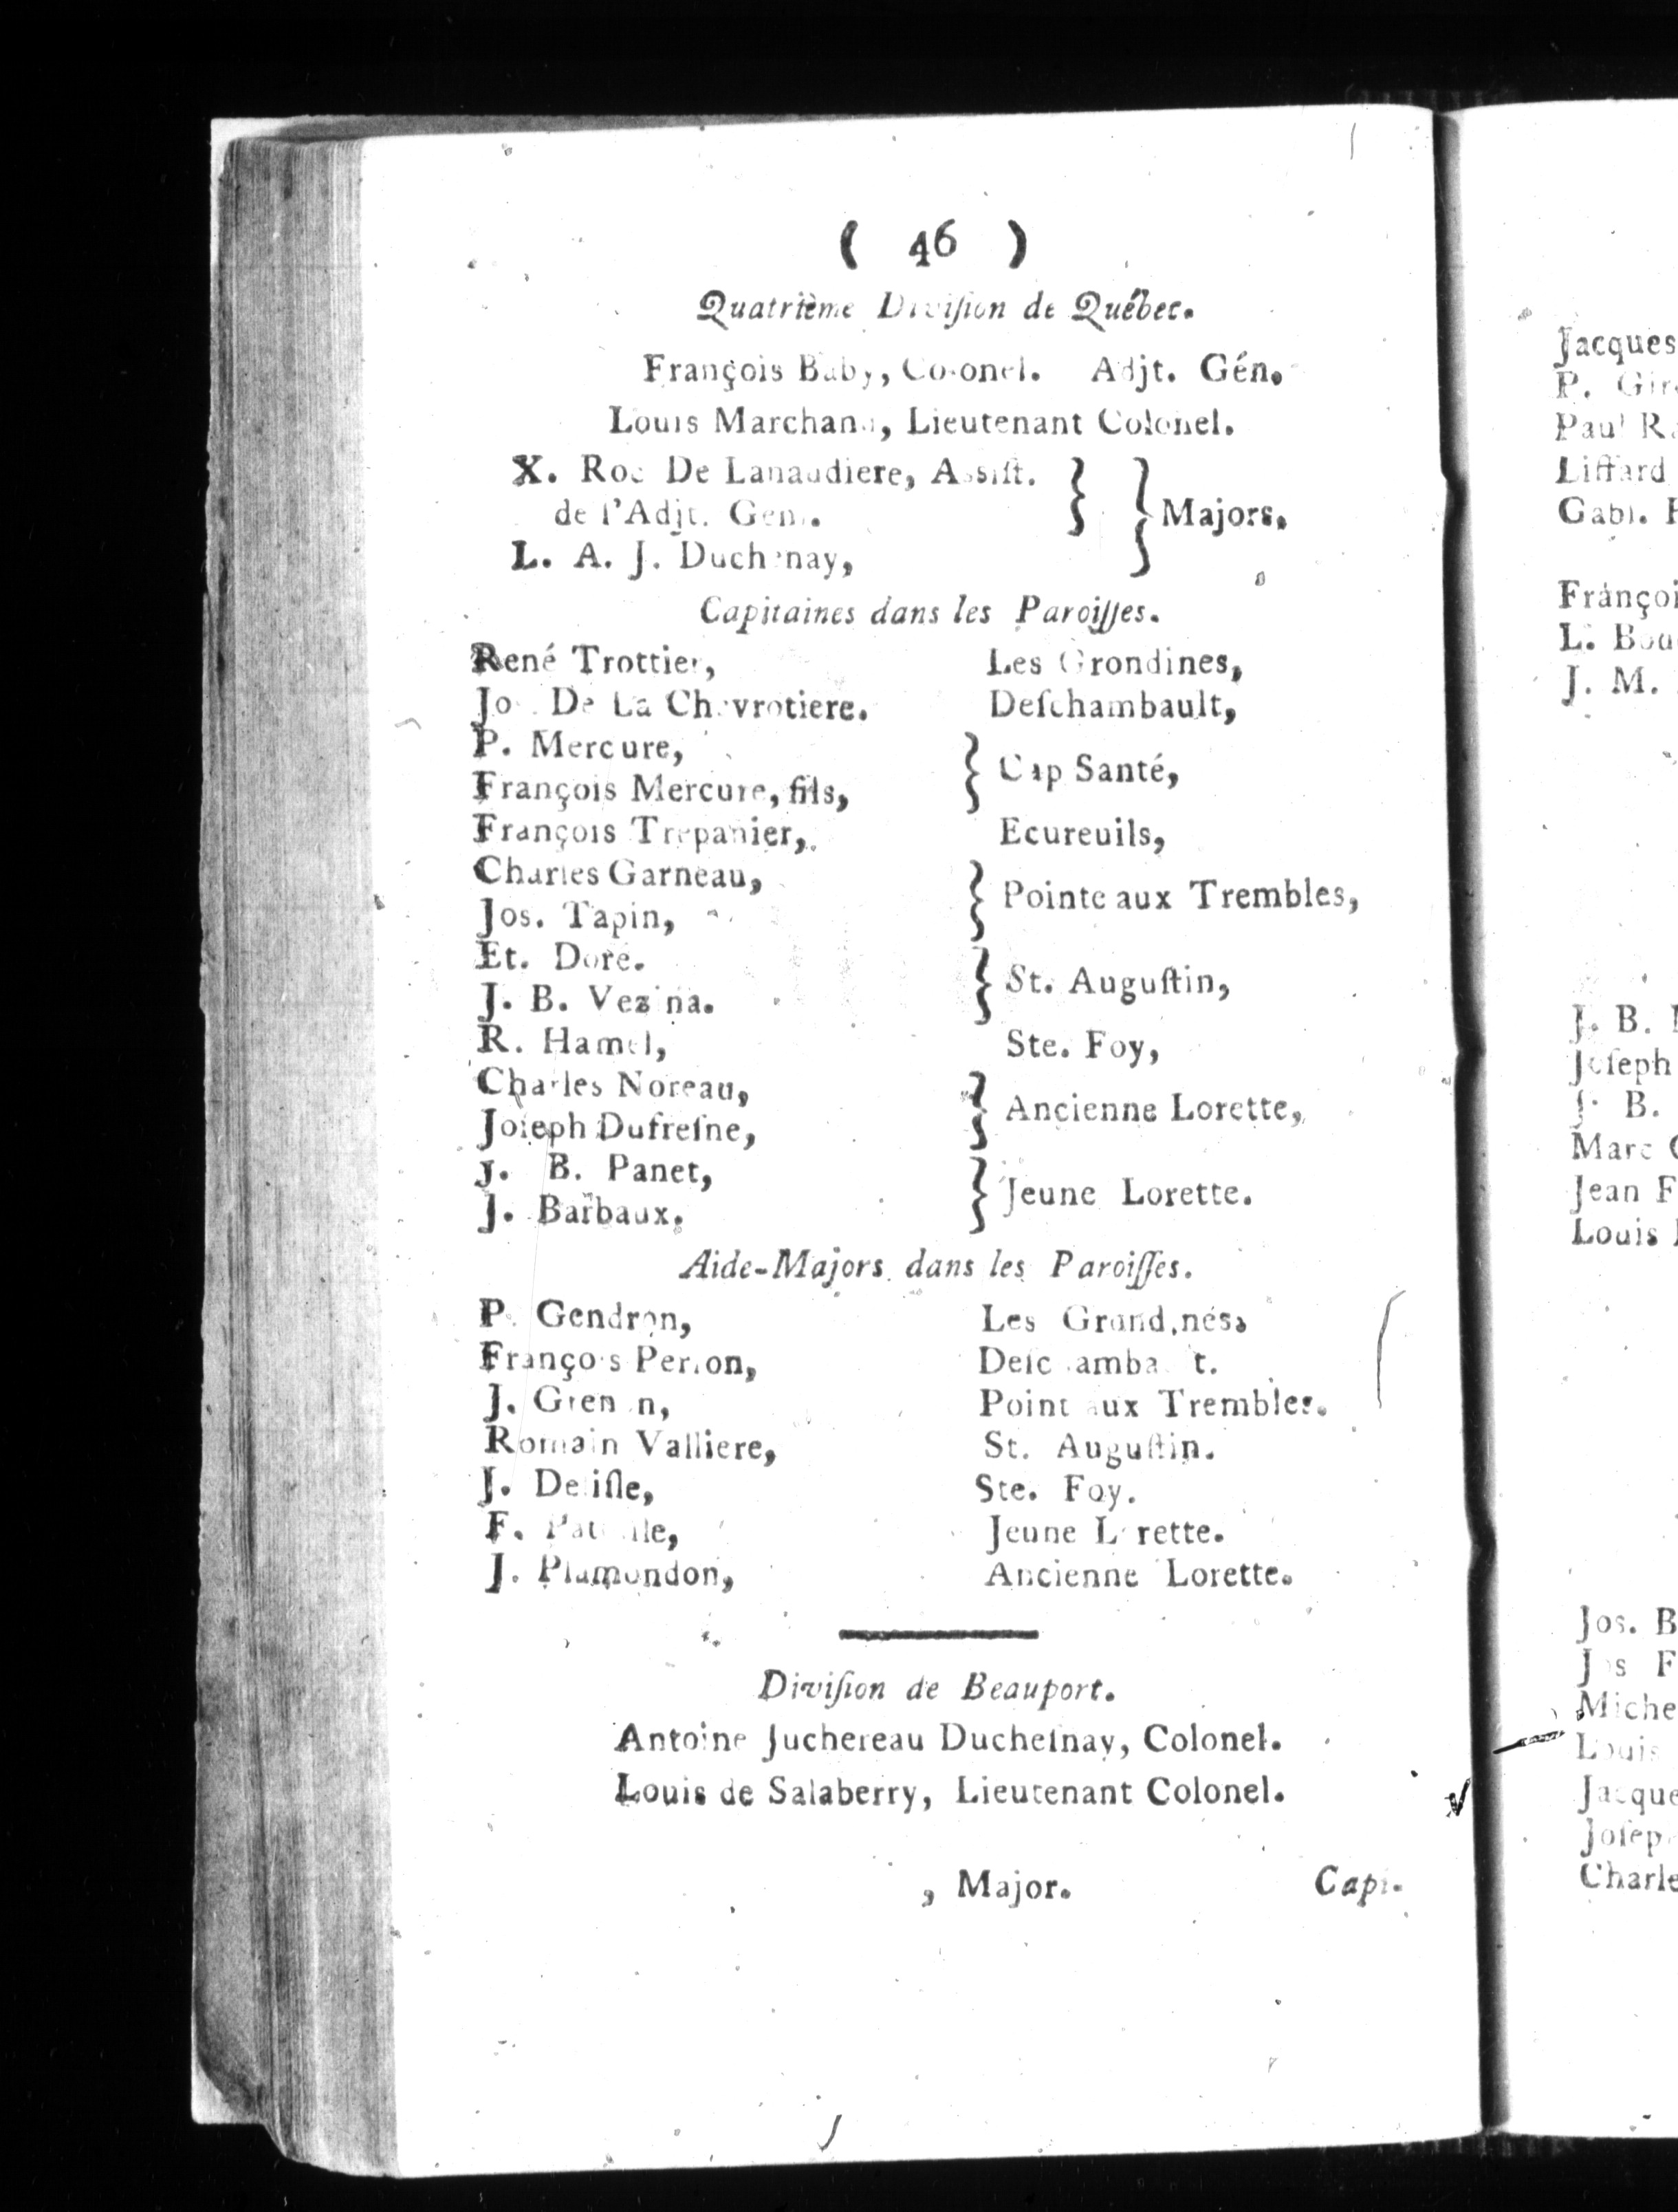 ( 46 )
Quatrième Diviſion de Québec.
François Baby, Colonel. Adjt. Gén.
Louis Marchand, Lieutenant Colonel.
X. Roc De Lanaudiere, Assiſt.
de l'Adjt. Gen.
Majors.
L. A. J. Duchenay,
Capitaines dans les Paroiſſes.
René Trottier, Les Grondines,
Jos. De La Chevrotiere. Deſchambault,
P. Mercure,
Cap Santé,
François Mercure, fils,
François Trepanier, Ecureuils,
Charles Garneau,
Pointe aux Trembles,
Jos. Tapin,
Et. Doré.
St. Auguſtin,
J. B. Vezina.
R. Hamel, Ste. Foy,
Charles Noreau,
Ancienne Lorette,
Joſeph Dufreſne,
J. B. Panet,
Jeune Lorette.
J. Barbaux.
Aide-Majors dans les Paroiſſes.
P. Gendron, Les
François Perron, Deſchambault.
J. Point aux Trembles.
Romain Valliere, St. Auguſtin.
J. Deliſle, Ste. Foy.
F. Jeune Lorette.
J. Plamondon, Ancienne Lorette.
Diviſion de Beauport.
Antoine Juchereau Ducheſnay, Colonel.
Louis de Salaberry, Lieutenant Colonel.
, Major.
Capi-
Jacques
P.
Paul
Liffard
Gabl.
L.
J. M.
J. B.
Joſeph
J. B.
Marc
Jean F
Louis
Jos. B
Jos F
Louis